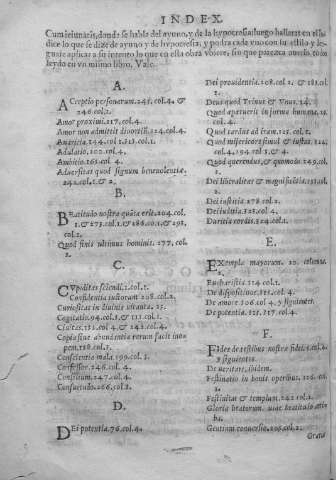 INDEX.
Cum ieiunatis, donde se habla del ayuno, y de la hypocresia: luego hallaras en el in
dice lo que se dize de ayuno y de hypocresia: y podra cada vno con su estilo y len
guaje aplicar a su intento lo que en esta obra viere, sin que parezca auerlo todo
leydo en vn mismo libro. Vale.
A.
ACceptio personarum. 245. col. 4. &
246. col. 1.
Amor proximi. 217. col. 4.
Amor non admittit diuortiũ. 124. col. 4.
Auaritia. 244. col. 1. & 13. col. 1.
Adulatio. 102. col. 4.
Ambitio. 163. col. 4.
Aduersitas quod signum beneuolentiæ.
242. col. 1. & 2.
B.
BEatitudo nostra quæ erit. 204. col.
1. & 273. col. 1. & 286. co. 1. & 292.
col. 2.
Quod finis vltimus hominis. 277. col.
2.
C.
CVpiditas sciendi. 1. col. 1.
Confidentia iustorum 208. col. 2.
Curiositas in diuinis vitanda. 25.
Cogitatio. 94. col. 1. & 111. col. 1.
Ciuitas. 131. col. 4. & 242. col. 4.
Copia siue abundantia rerum facit ino
pem. 118. col. 1.
Conscientia mala. 199. col. 3.
Confessor. 246. col. 4.
Consilium. 247. col. 4.
Consuetudo. 266. col. 2.
D.
DEi potentia. 76. col. 4.
Dei prouidentia. 108. col. 2. & 181. col
2.
Deus quod Trinus & Vnus. 14.
Quod apparuerit in forma humana. 18.
col. 2.
Quod tardus ad iram. 125. col. 2.
Quod misericors simul & iustus. 124.
col. 4. 194. col. 1. &
Quod querendus, & quomodo. 249. col.
1.
Dei liberalitas & magnificẽtia. 151. col.
2.
Dei iustitia. 278. col. 2.
Dei vultus. 121. col. 4.
Duritia cordis. 324. col. 1.
E.
EXempla mayorum. 20. columna
2.
Eucharistia. 214. col. 1.
De dispositione. 215. col. 4.
De amore 106. col. 4. y siguientes.
De potentia. 215. 217. col. 4.
F.
FIdes de testibus nostræ fidei. 5. col. 2.
y siguientes.
De veritate, ibidem.
Festinatio in bonis operibus. 126. co.
2.
Festiuitas & templum. 242. col. 2.
Gentium conuersio. 106. col. 2.
Grati